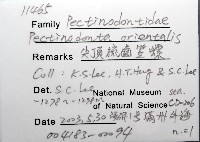 11465
Family Pectinodontidae
Pectinodonta orientalis
Remarks 尖頂梳齒笠螺
Coll: K.S. Lee, H.T. Hung & S.C. Lee
Det. S.C. Lee National Museum sea.
-1278 ~ -1298 m of Natural Science CD-206
Date 2003, 5, 30
004183-00094 n.=1